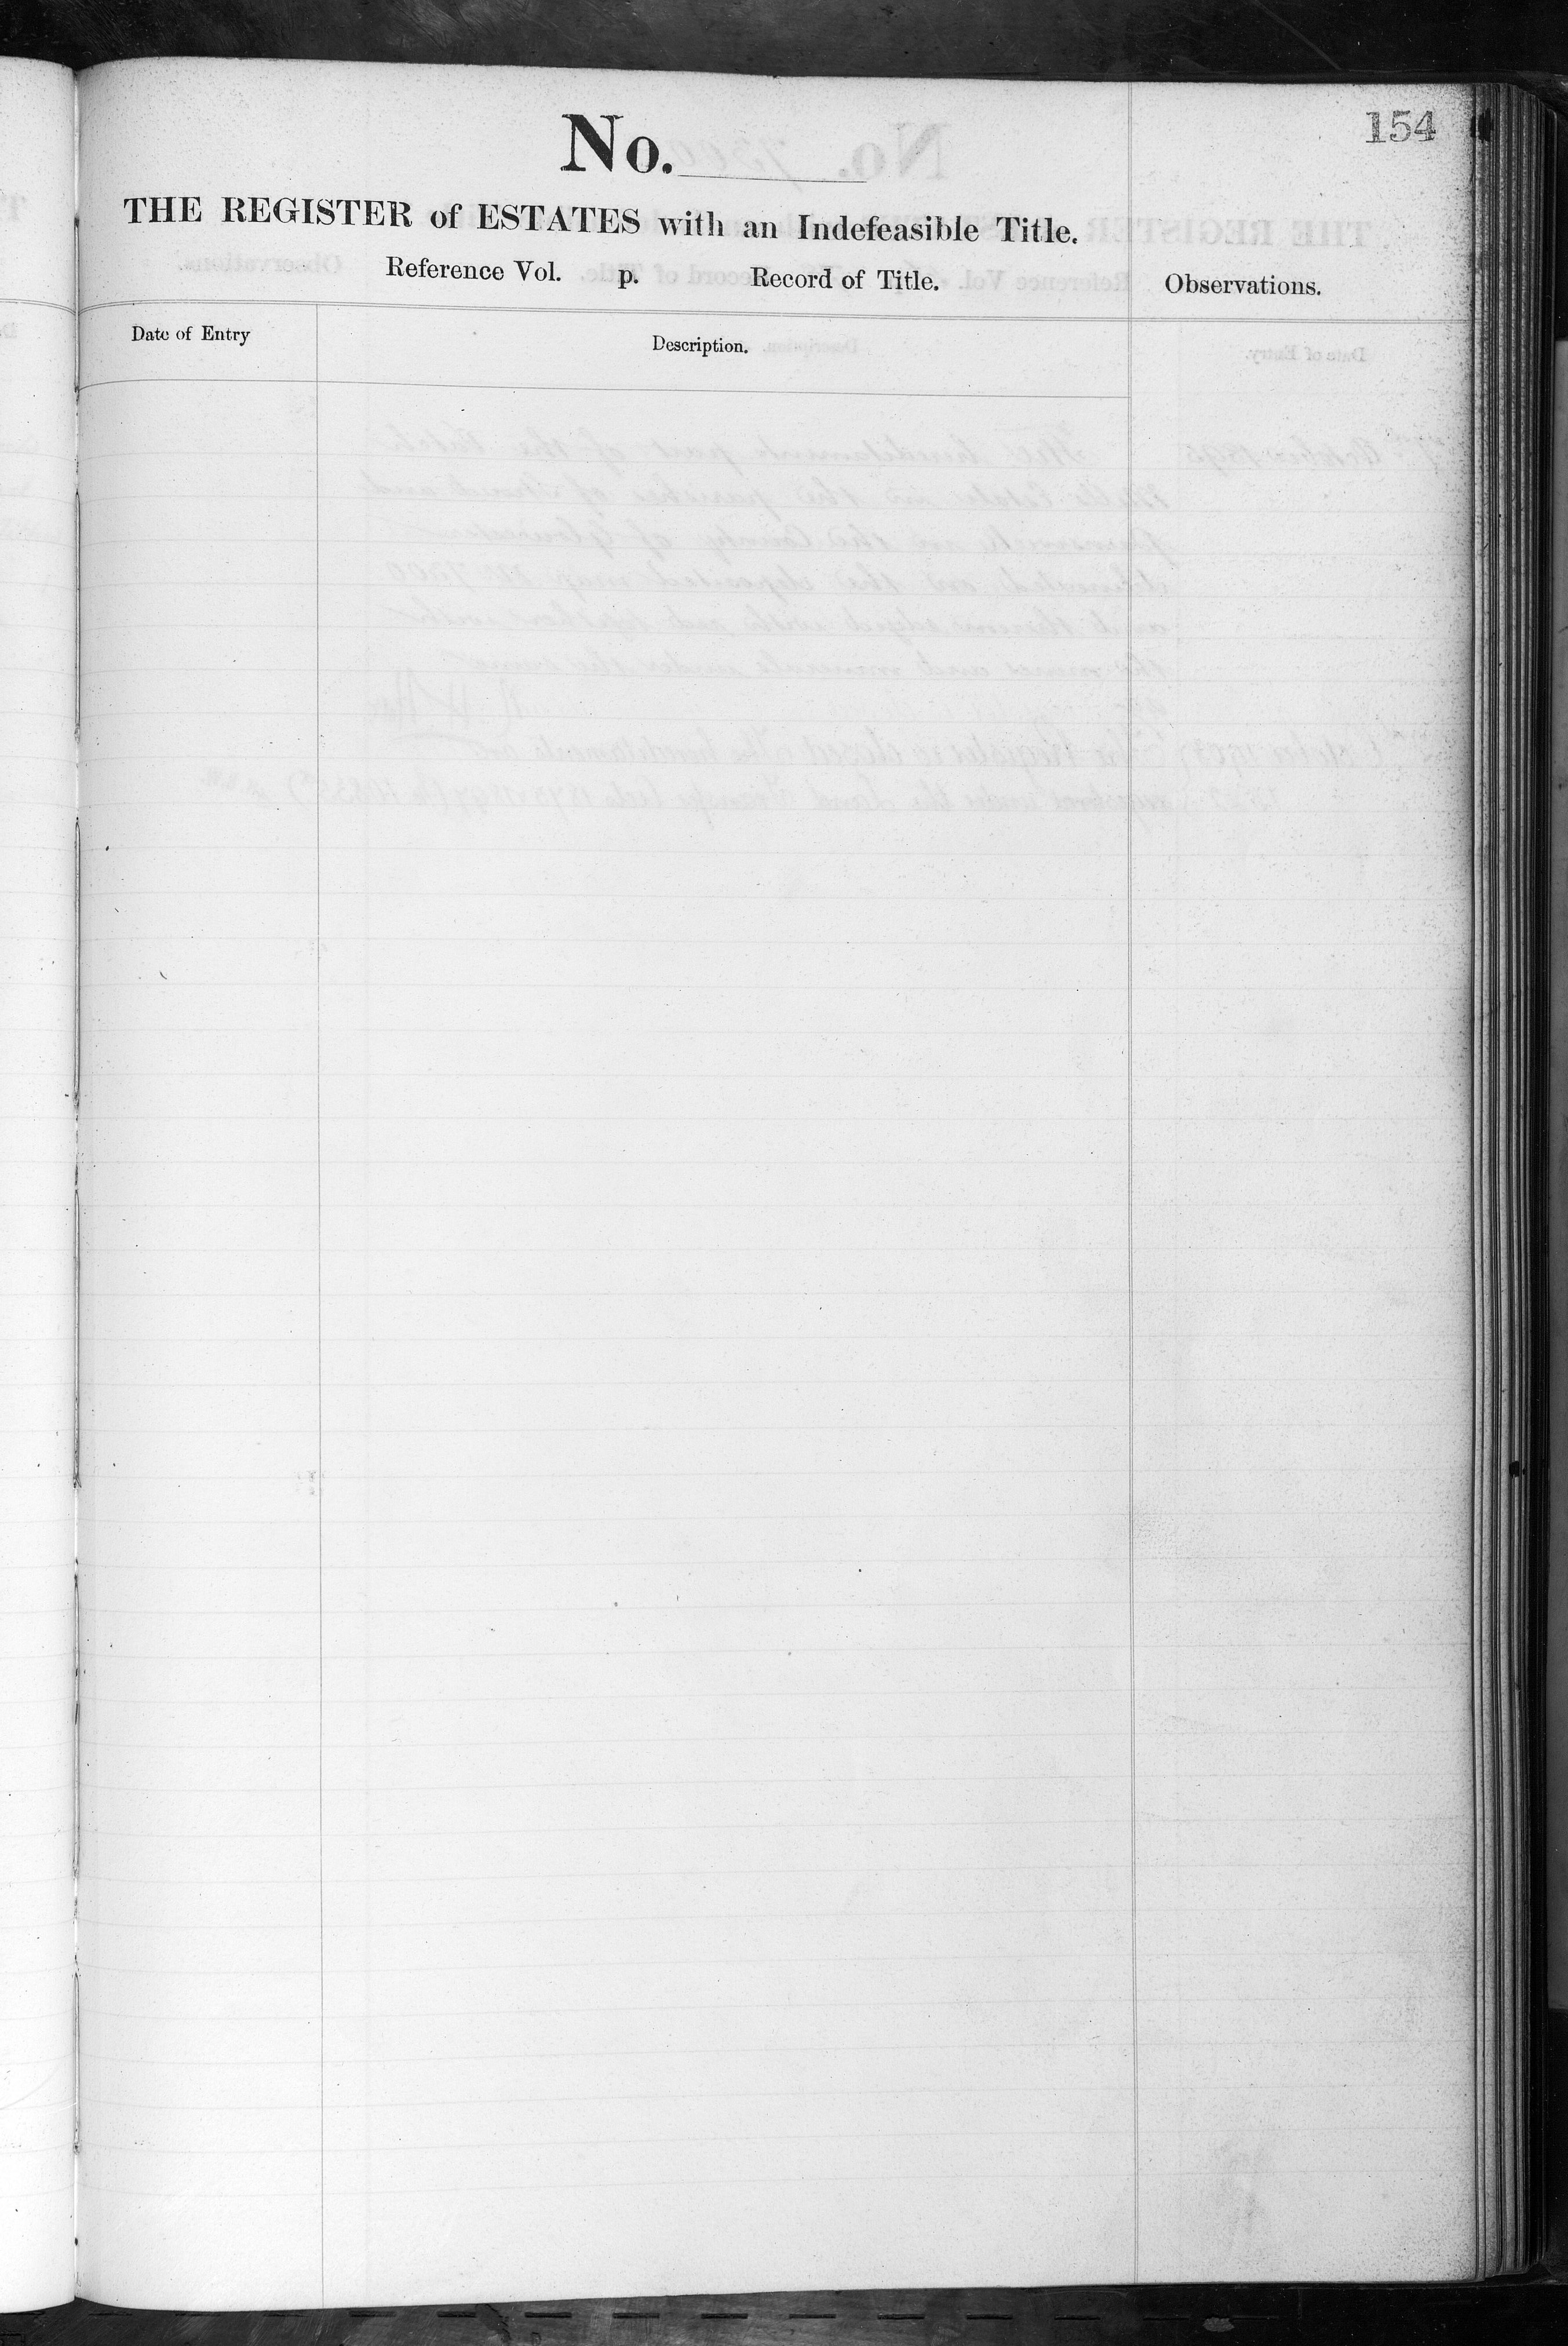 154
No.
THE REGISTER of ESTATES with an Indefeasible Title.
Reference Vol. p. Record of Title. Observations.
Date of Entry Description.